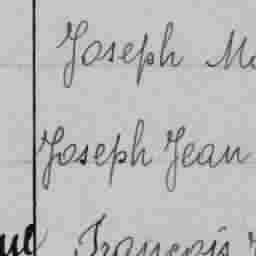 Joseph
Joseph Jean
François